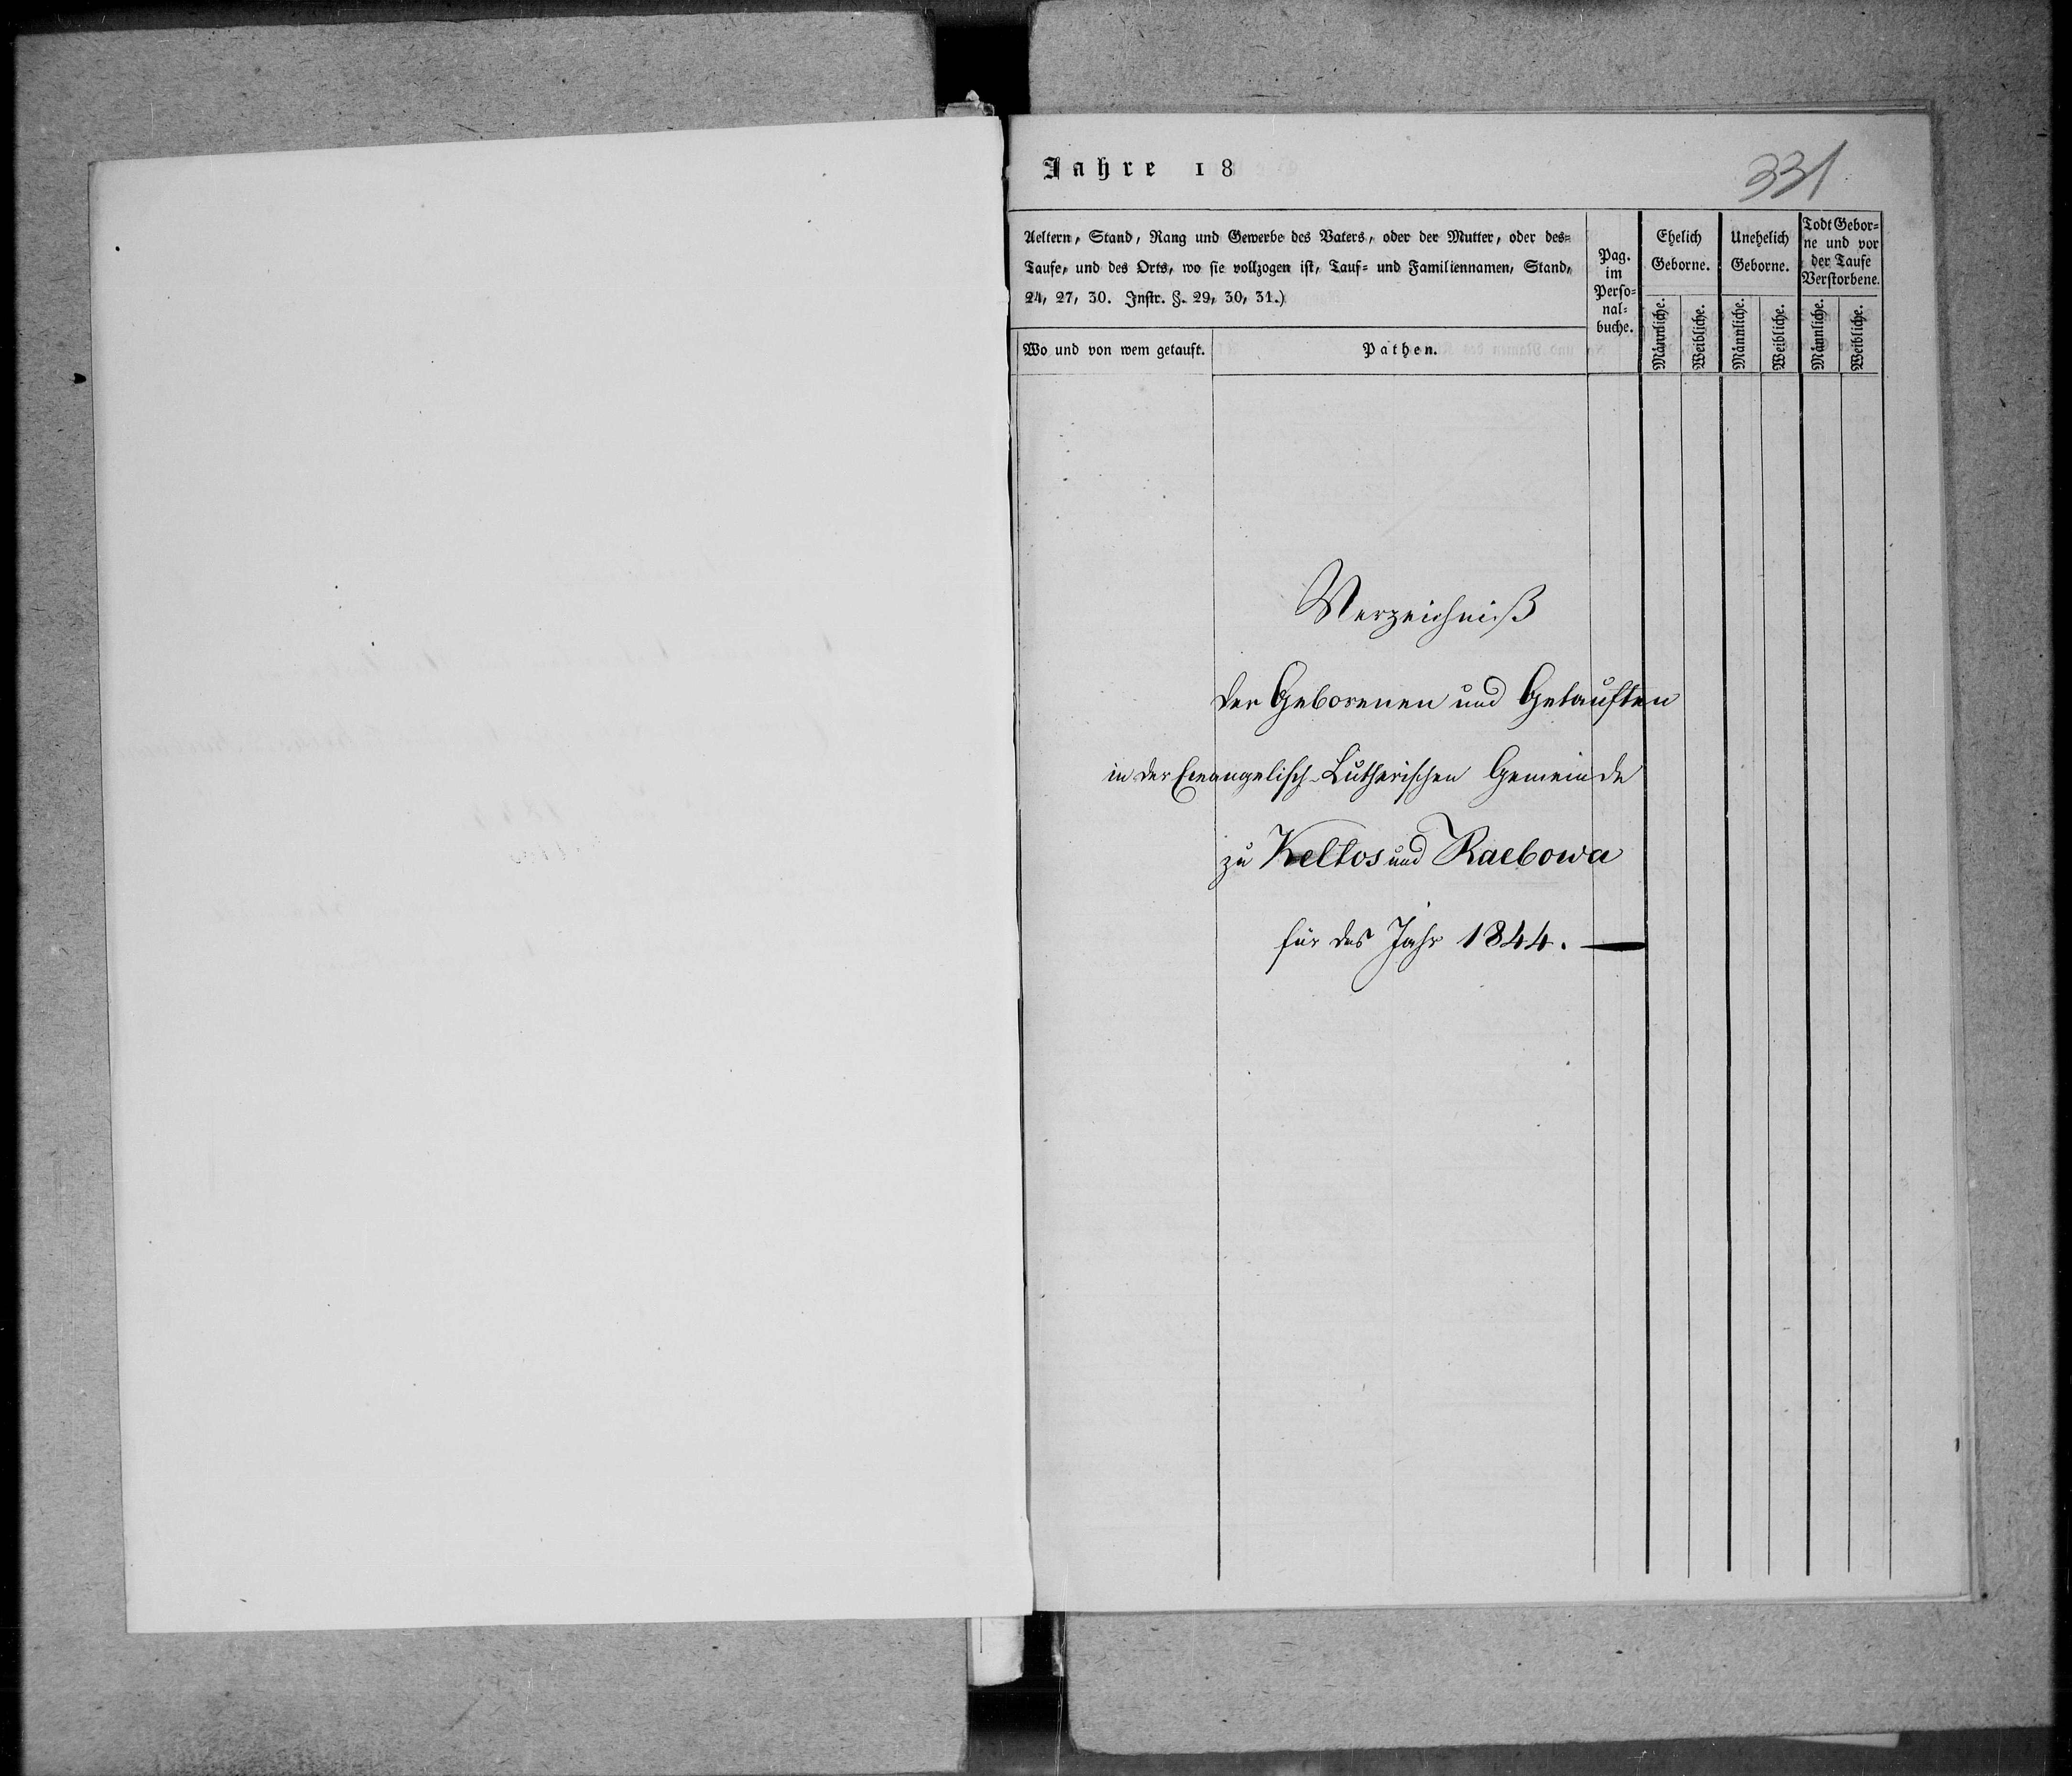 Jahre 18
331
Aeltern, Stand, Rang und Gewerbe des Vaters, oder der Mutter, oder des-
Taufe, und des Orts, wo sie vollzogen ist, Tauf- und Familiennamen, Stand,
24, 27, 30. Instr. §. 29, 30, 31.)
Wo und von wem getauft.
Pathen.
Pag.
im
Perso-
nal-
buche.
Ehelich
Geborne.
Männliche.
Weibliche.
Unehelich
Geborne.
Männliche.
Weibliche.
Todt Gebor-
ne und vor
der Taufe
Verstorbene.
Männliche.
Weibliche.
Verzeichniß
der Geborenen und Getauften
in der Evangelisch-Lutherischen Gemeinde
zu Keltos und Raebowa
für das Jahr 1844.